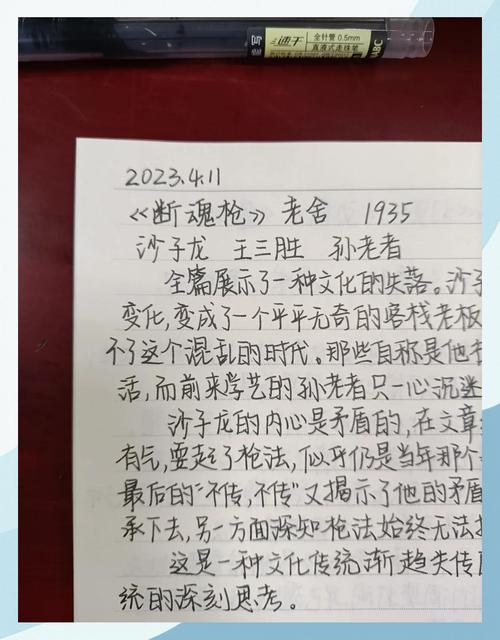 速干
全针管 0.5mm
直液式走珠笔
ABC
2023.4.11
《断魂枪》 老舍 1935
沙子龙 王三胜 孙老者
全篇展示了一种文化的失落。沙子
变化,变成了一个平平无奇的客栈老板
不了这个混乱的时代。那些自称是他
活,而前来学艺的孙老者只一心沉迷
沙子龙的内心是矛盾的,在文章
有气,耍起了枪法,似乎仍是当年那个
最后的“不传,不传”又揭示了他的矛盾
承下去,另一方面深知枪法始终无法
这是一种文化传统渐趋失传
统的深刻思考。